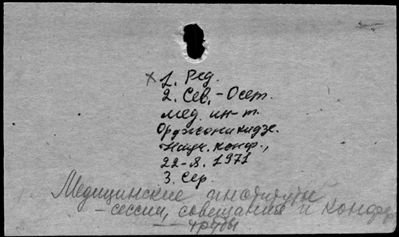 ×1. Ред.
2. Сев.-Осет.
мед. ин-т.
Орджоникидзе.
Научн. конф.,
22-я. 1971
3. Сер.
Медицинские институты
— сессии, совещания и конфер.
— труды